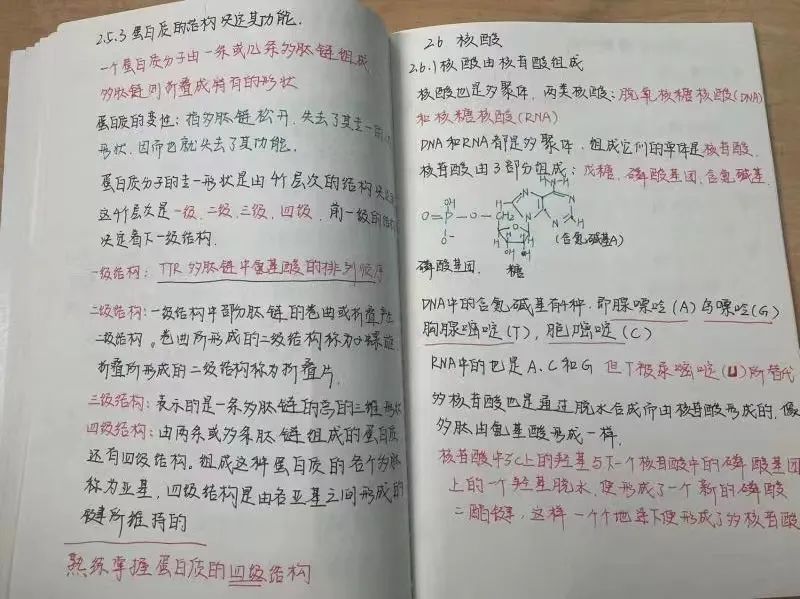 2.5.3 蛋白质的结构决定其功能.
一个蛋白质分子由一条或几条多肽链组成
多肽链则折叠成特有的形状
蛋白质的变性：指多肽链松开，失去了其专一的
形状，因而也就失去了其功能.
蛋白质分子的专一形状是由4个层次的结构决定
这4个层次是一级、二级、三级、四级. 前一级的结构
决定着下一级结构.
一级结构：TTR多肽链中氨基酸的排列顺序
二级结构：一级结构中部分肽链的卷曲或折叠产生
二级结构。卷曲所形成的二级结构称为α螺旋
折叠所形成的二级结构称为折叠片.
三级结构：表示的是一条多肽链的总的三维形状
四级结构：由两条或多条肽链组成的蛋白质
还有四级结构。组成这种蛋白质的各个多肽
称为亚基，四级结构是由各亚基之间形成的
键所维持的
熟练掌握蛋白质的四级结构
2.6 核酸
2.6.1 核酸由核苷酸组成
核酸也是多聚体，两类核酸：脱氧核糖核酸(DNA)
和核糖核酸(RNA)
DNA和RNA都是多聚体，组成它们的单体是核苷酸.
核苷酸由3部分组成：戊糖、磷酸基团、含氮碱基
(含氮碱基A)
磷酸基团. 糖
DNA中的含氮碱基有4种，即腺嘌呤(A)鸟嘌呤(G)
胸腺嘧啶(T)，胞嘧啶(C)
RNA中的也是A、C和G 但T被尿嘧啶(U)所替代
多核苷酸也是通过脱水合成而由核苷酸形成的，像
多肽由氨基酸形成一样.
核苷酸中3'C上的羟基与下一个核苷酸中的磷酸基团
上的一个羟基脱水，便形成了一个新的磷酸
二酯键，这样一个个地连下便形成了多核苷酸